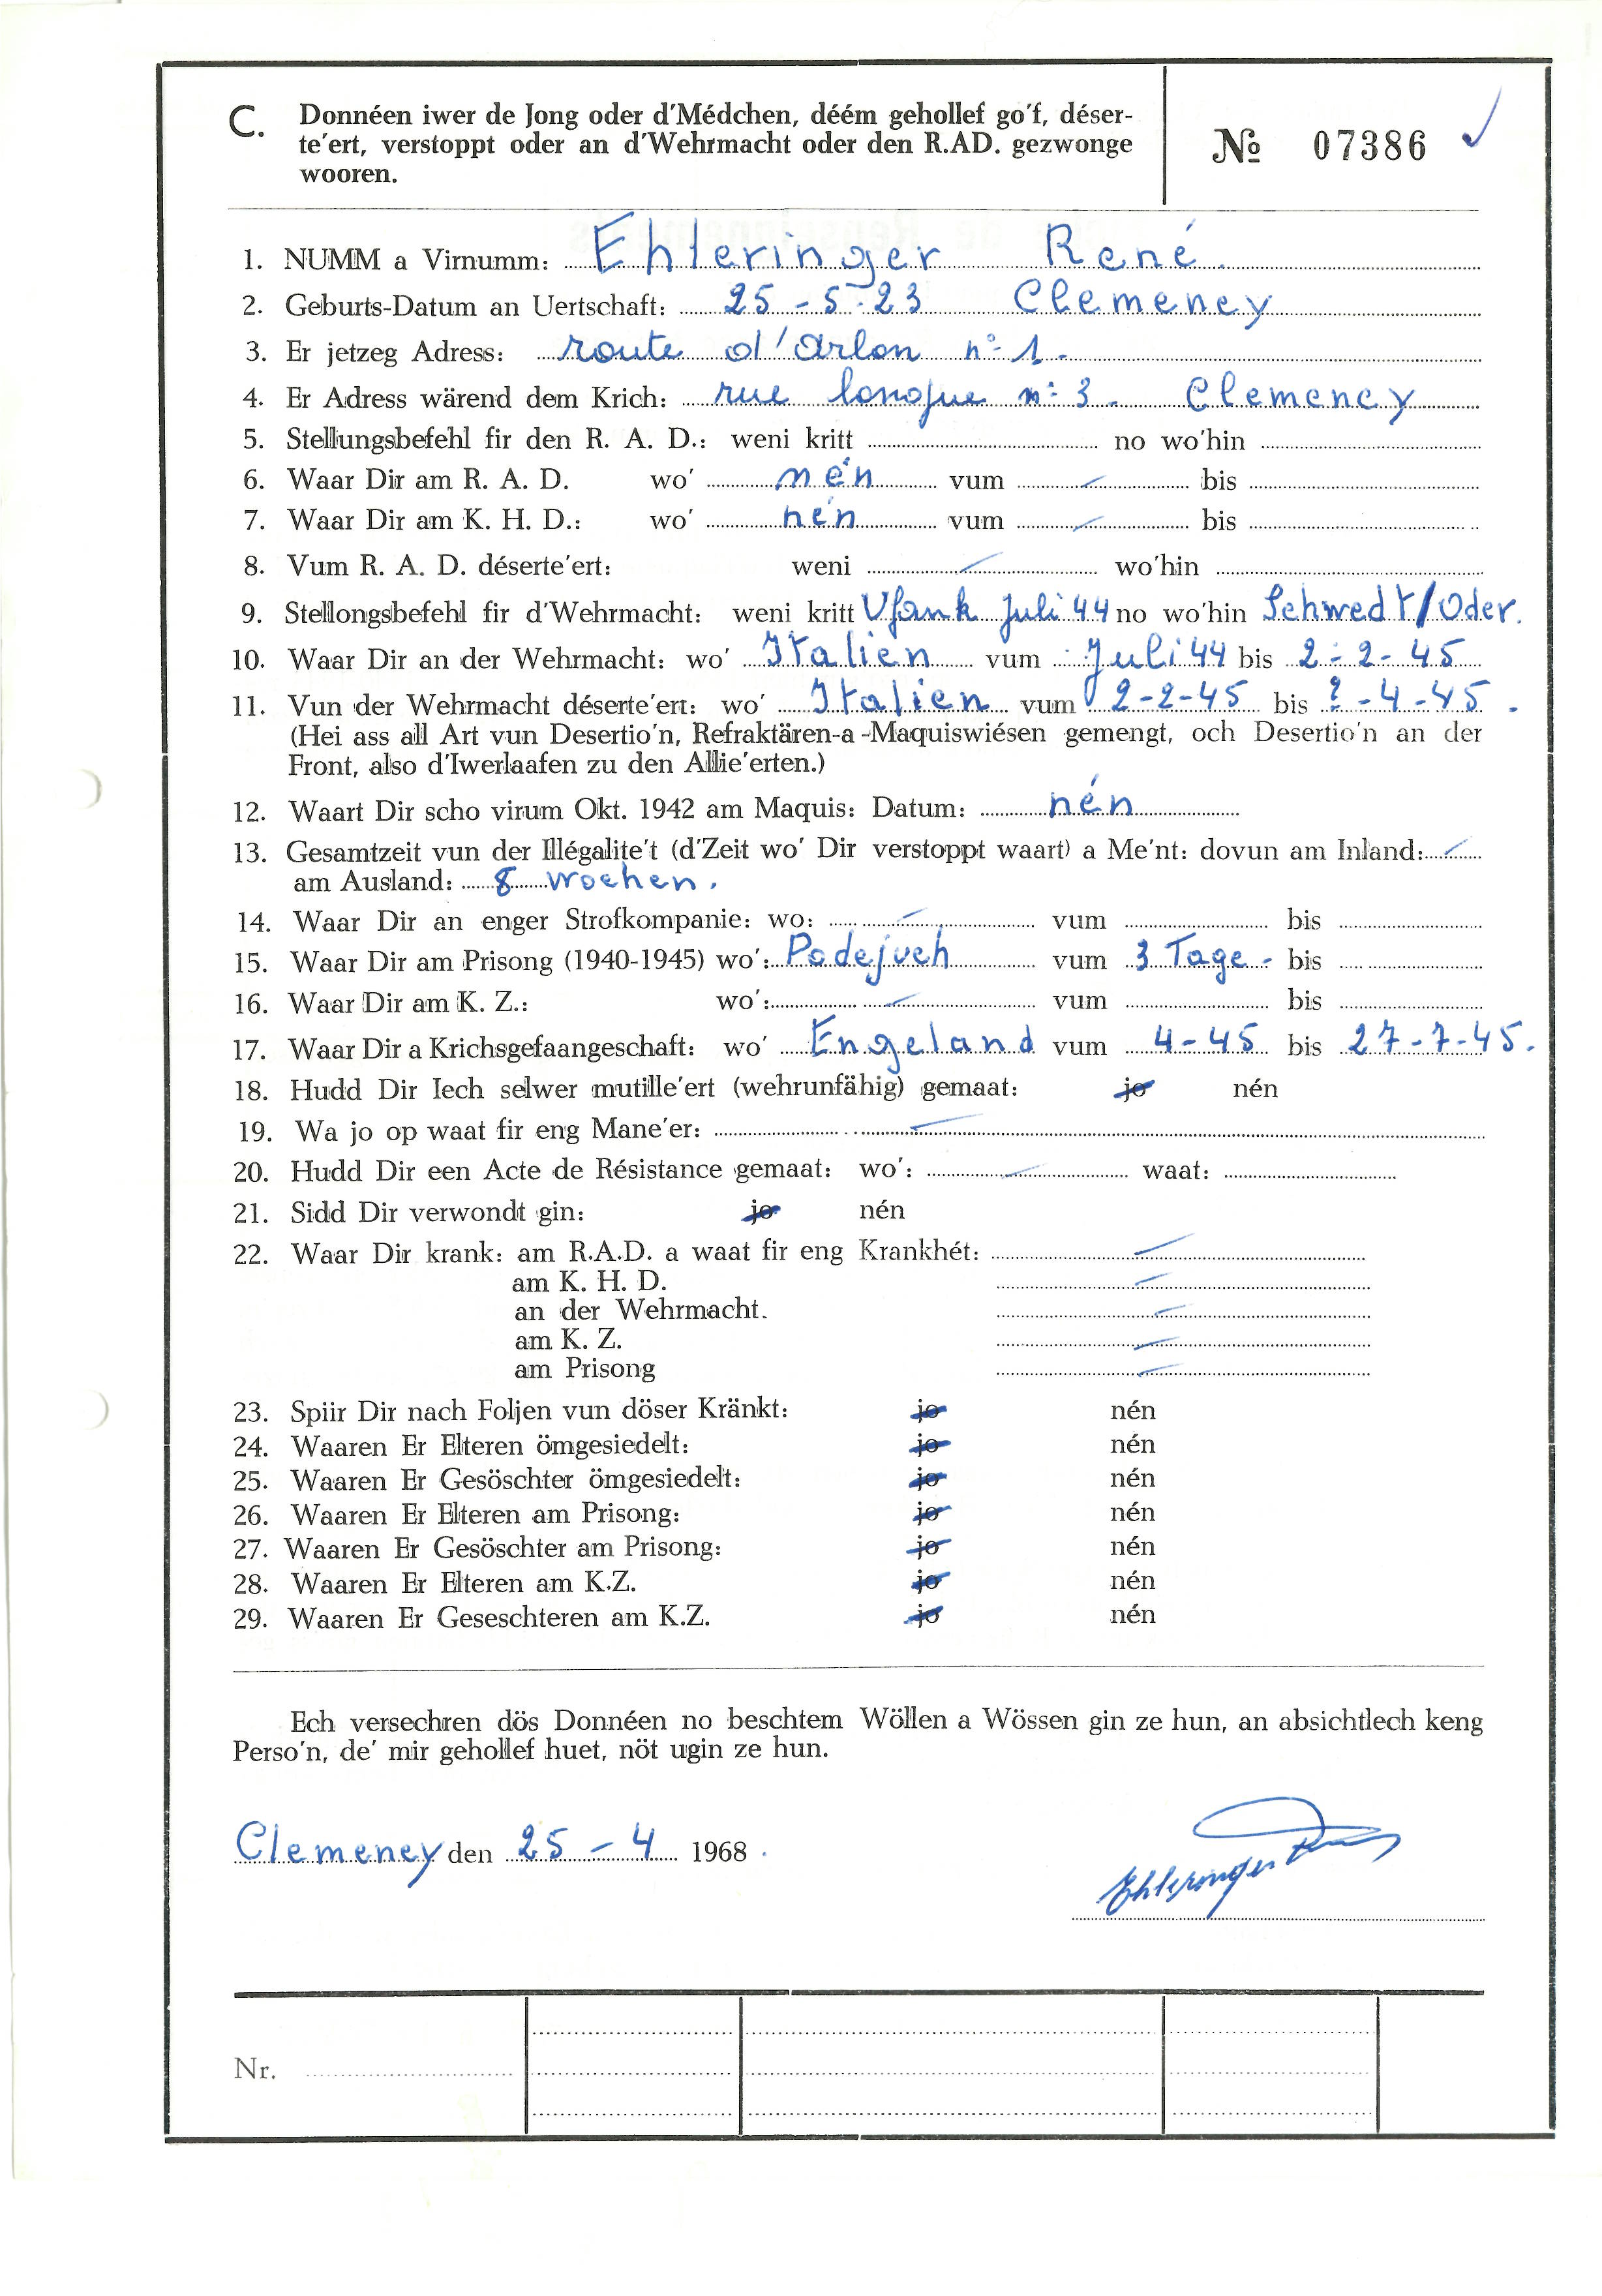 C. Donnéen iwer de Jong oder d'Médchen, déém gehollef go'f, déser-
te'ert, verstoppt oder an d'Wehrmacht oder den R.AD. gezwonge
wooren.
No 07386
1. NUMM a Virnumm: Ehleringer René.
2. Geburts-Datum an Uertschaft: 25-5-23 Clemeney
3. Er jetzeg Adress: route d'Arlon n° 1.
4. Er Adress wärend dem Krich: rue longue n° 3. Clemency
5. Stellungsbefehl fir den R. A. D.: weni kritt no wo'hin
6. Waar Dir am R. A. D. wo' nén vum bis
7. Waar Dir am K. H. D.: wo' nén vum bis
8. Vum R. A. D. déserte'ert: weni wo'hin
9. Stellongsbefehl fir d'Wehrmacht: weni kritt Ufank Juli 44 no wo'hin Schwedt/Oder.
10. Waar Dir an der Wehrmacht: wo' Italien vum Juli 44 bis 2-2-45
11. Vun der Wehrmacht déserte'ert: wo' Italien vum 2-2-45 bis ?-4-45.
(Hei ass all Art vun Desertio'n, Refraktären-a-Maquiswiésen gemengt, och Desertio'n an der
Front, also d'Iwerlaafen zu den Allie'erten.)
12. Waart Dir scho virum Okt. 1942 am Maquis: Datum: nén
13. Gesamtzeit vun der Illégalite't (d'Zeit wo' Dir verstoppt waart) a Me'nt: dovun am Inland:
am Ausland: 8 Wochen.
14. Waar Dir an enger Strofkompanie: wo: vum bis
15. Waar Dir am Prisong (1940-1945) wo': Podejuch vum 3 Tage- bis
16. Waar Dir am K. Z.: wo': vum bis
17. Waar Dir a Krichsgefaangeschaft: wo' Engeland vum 4-45 bis 27-7-45.
18. Hudd Dir Iech selwer mutille'ert (wehrunfähig) gemaat: jo nén
19. Wa jo op waat fir eng Mane'er:
20. Hudd Dir een Acte de Résistance gemaat: wo': waat:
21. Sidd Dir verwondt gin: jo nén
22. Waar Dir krank: am R.A.D. a waat fir eng Krankhét:
am K. H. D.
an der Wehrmacht.
am K. Z.
am Prisong
23. Spiir Dir nach Foljen vun döser Kränkt: jo nén
24. Waaren Er Elteren ömgesiedelt: jo nén
25. Waaren Er Gesöschter ömgesiedelt: jo nén
26. Waaren Er Elteren am Prisong: jo nén
27. Waaren Er Gesöschter am Prisong: jo nén
28. Waaren Er Elteren am K.Z. jo nén
29. Waaren Er Geseschteren am K.Z. jo nén
Ech versechren dös Donnéen no beschtem Wöllen a Wössen gin ze hun, an absichtlech keng
Perso'n, de' mir gehollef huet, nöt ugin ze hun.
Clemeney den 25-4 1968.
Ehleringer
Nr.